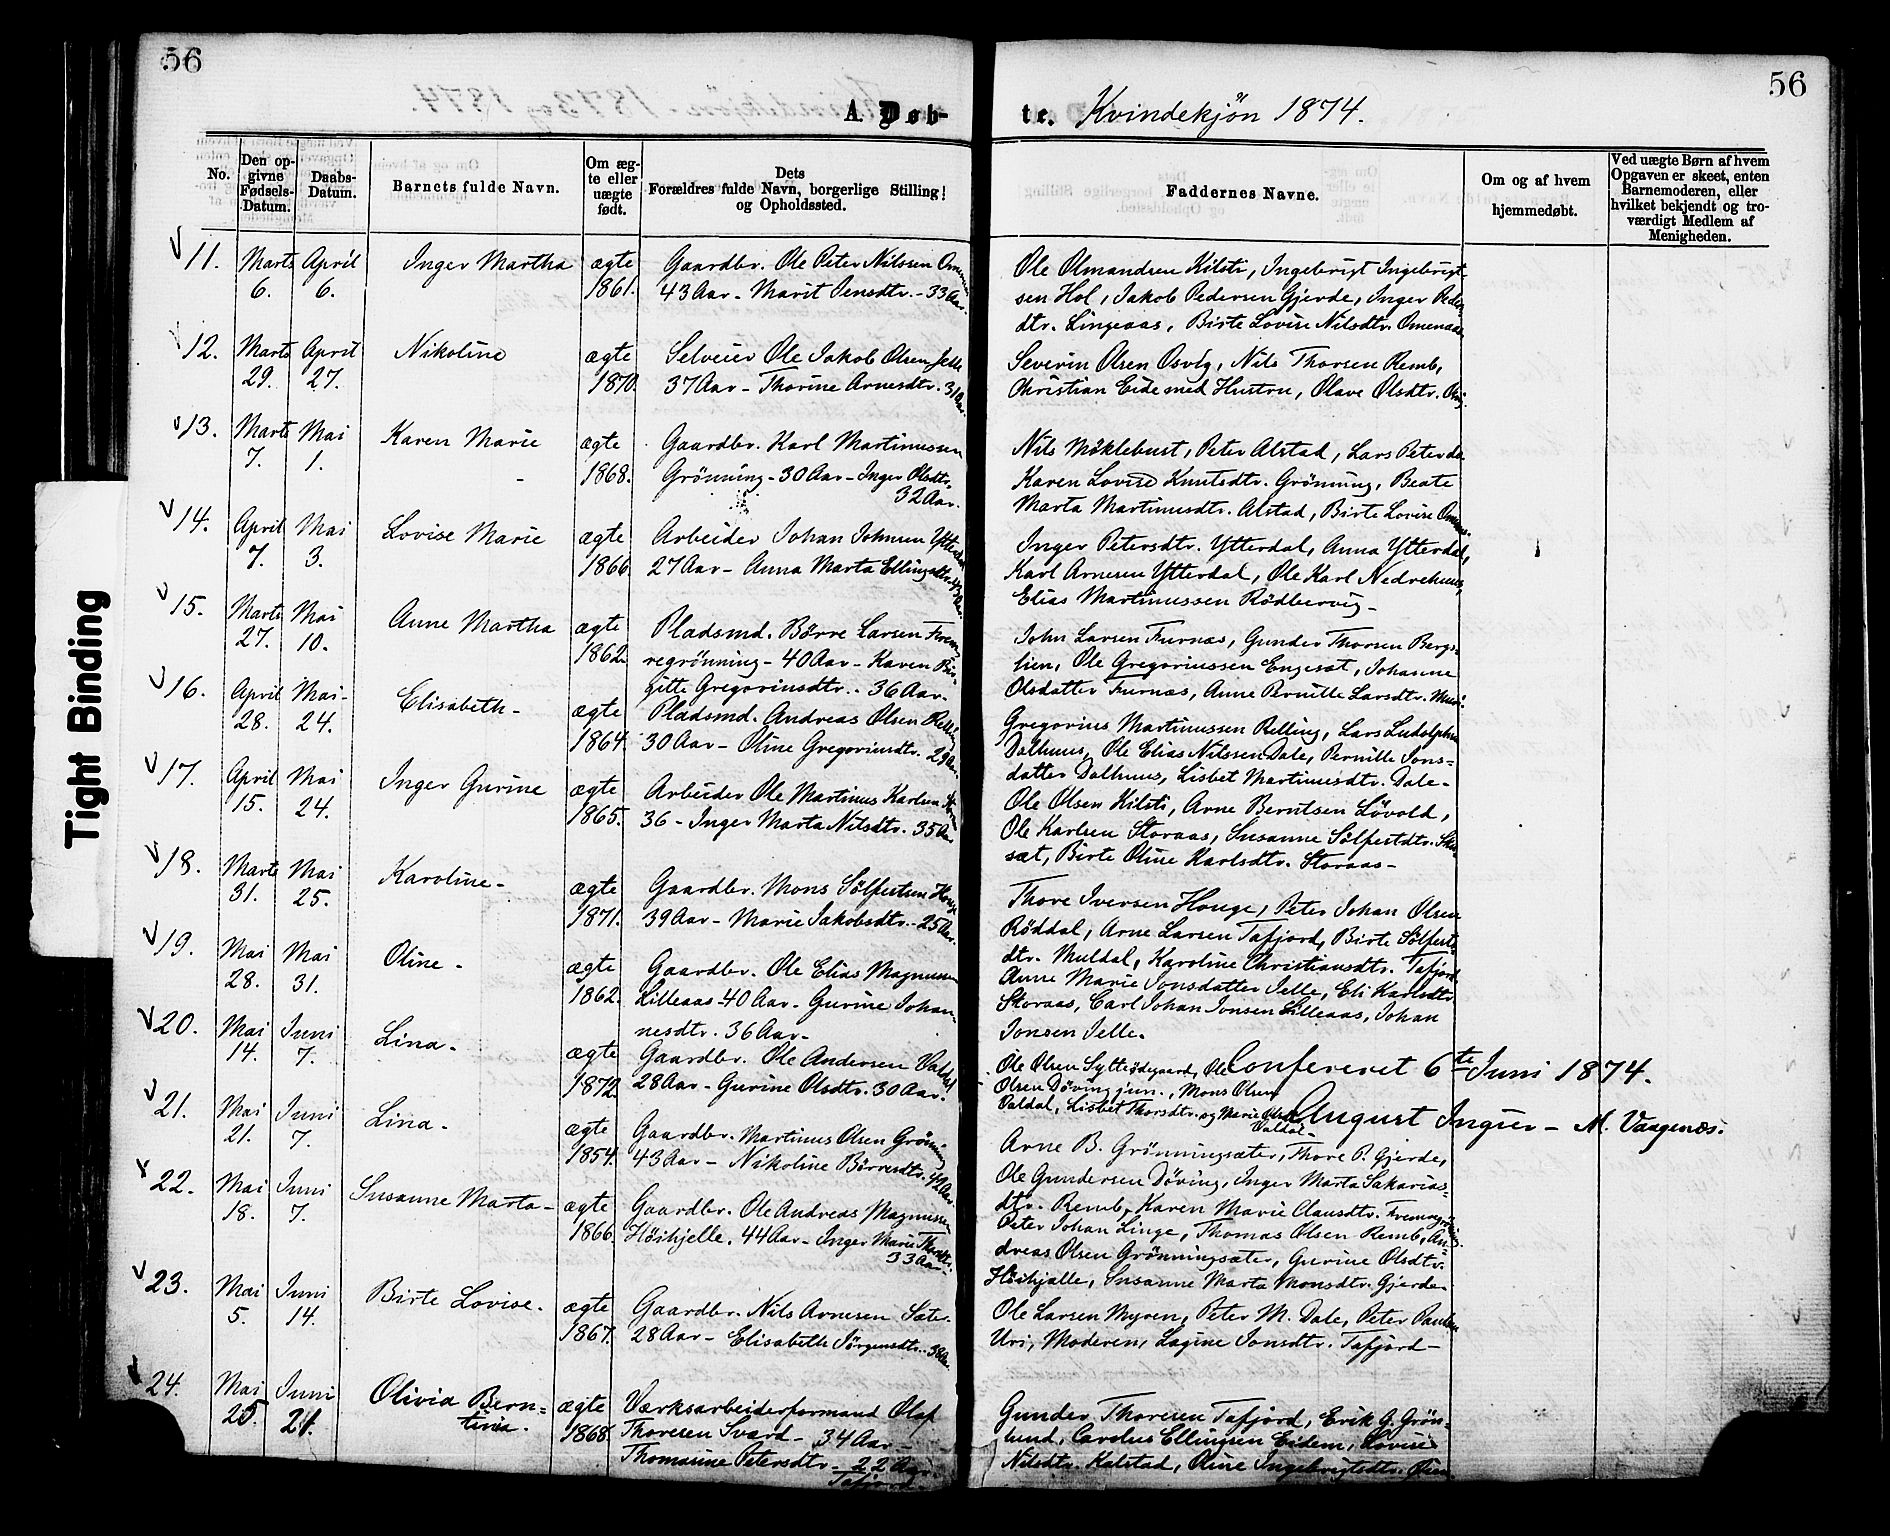 56
56
A. Døb-
te. Kvindekjøn 1874.
No.
Den op-
givne
Fødsels-
Datum.
Daabs-
Datum.
Barnets fulde Navn.
Om æg-
te eller
uægte
født.
Dets
Forældres fulde Navn, borgerlige Stilling
og Opholdssted.
Faddernes Navne.
Om og af hvem
hjemmedøbt.
Ved uægte Børn af hvem
Opgaven er skeet, enten
Barnemoderen, eller
hvilket bekjendt og tro-
værdigt Medlem af
Menigheden.
Tight Binding
11. Marts 6. April 6. Inger Martha ægte 1861.
Gaardbr. Ole Peter Nilssen
43 Aar - Marit Jensdtr. - 33 Aar.
Ole Olmandsen Kilsti, Ingebrigt Ingebrigt
sen Hol, Jakob Pedersen Gjerde, Inger Peders
dtr. Lingeaas, Birte Lovise Nilsdtr. Omenaas
12. Marts 29. April 27. Nikoline ægte 1870.
Selveier Ole Jakob Olsen Jelle
37 Aar - Thorine Arnesdtr. 31 Aar.
Severin Olsen Osvig, Nils Thorsen Remb,
Christian Eide med Hustru, Olave Olsdtr.
13. Marts 7. Mai 1. Karen Marie ægte 1868.
Gaardbr. Karl Martinussen
Grönning - 30 Aar - Inger Olsdtr.
32 Aar.
Nils Möklebust, Peter Alstad, Lars Peter do
Karen Lovise Knutsdtr. Grönning, Beate
Marta Martinusdtr. Alstad, Birte Lovise
14. April 7. Mai 3. Lovise Marie ægte 1866.
Arbeider Johan Johnsen Ytterdal
27 Aar - Anna Marta Ellingsdtr.
Inger Petersdtr. Ytterdal, Anna Ytterdal,
Karl Arnesen Ytterdal, Ole Karl Nedrehuus,
Elias Martinussen Rödbervig -
15. Marts 27. Mai 10. Anne Martha ægte 1862.
Pladsmd. Börre Larsen Frem-
regrönning - 40 Aar - Karen Bir-
gitte Gregoriusdtr. - 36 Aar.
John Larsen Furnæs, Gunder Thorsen Bergs-
lien, Ole Gregoriussen Engeset, Johanne
Olsdatter Furnæs, Anne Pernille Larsdtr.
16. April 28. Mai 24. Elisabeth - ægte 1864.
Pladsmd. Andreas Olsen Relling
30 Aar - Oline Gregoriusdtr. 29 Aar.
Gregorius Martinussen Relling, Lars Ludolphsen
Dalhuus, Ole Elias Nilssen Dale, Pernille Jons-
datter Dalhuus, Lisbet Martinusdtr. Dale -
17. April 15. Mai 24. Inger Gurine ægte 1865.
Arbeider Ole Martinus Karlsen
36 - Inger Marta Nilsdtr. 35 Aar
Ole Olsen Kilsti, Arne Berntsen Lövold,
Ole Karlsen Storaas, Susanne Sölfestdtr.
sæt, Birte Oline Karlsdtr. Storaas -
18. Marts 31. Mai 25. Karoline - ægte 1871.
Gaardbr. Mons Sölfestsen Houge
39 Aar - Marie Jakobsdtr. - 25 Aar.
Thore Iversen Houge, Peter Johan Olsen
Röddal, Arne Larsen Tafjord, Birte Sölfest-
dtr. Muldal, Karoline Christiansdtr. Tafjord
19. Mai 28. Mai 31. Oline - ægte 1862.
Gaardbr. Ole Elias Magnussen
Lilleaas - 40 Aar - Gurine Johan-
nesdtr. 36 Aar -
Anne Marie Jonsdatter Jelle, Eli Karlsdtr.
Storaas, Carl Johan Jonsen Lilleaas, Johan
Jonsen Jelle.
20. Mai 14. Juni 7. Lina - ægte 1872.
Gaardbr. Ole Andersen Valdal
28 Aar - Gurine Olsdtr. 30 Aar.
Ole Olsen Sylteödegaard, Ole
Olsen Döving jun., Mons Olsen
Valdal, Lisbet Thorsdtr. og Marie Olsdtr.
Valdal -
Confereret 6te Juni 1874.
August Ingier - M. Vaagenæs.
21. Mai 21. Juni 7. Lina - ægte 1854.
Gaardbr. Martinus Olsen Grönning
43 Aar - Nikoline Börresdtr. 42 Aar.
Arne B. Grönningsæter, Thore P. Gjerde,
Ole Gundersen Döving, Inger Marta Sakarias-
dtr. Remb, Karen Marie Clausdtr. Fremregrönning.
22. Mai 18. Juni 7. Susanne Marta - ægte 1866.
Gaardbr. Ole Andreas Magnussen
Höihjelle. 44 Aar - Inger Marie Thordtr.
33 Aar
Peter Johan Linge, Thomas Olsen Remb, An-
dreas Olsen Grönningsæter, Gurine Olsdtr.
Höihjelle, Susanne Marta Monsdtr. Gjerde
23. Mai 5. Juni 14. Birte Lovise. ægte 1867.
Gaardbr. Nils Arnesen Sæter
28 Aar - Elisabeth Jörgensdtr. - 38 Aar.
Ole Larsen Myren, Peter M. Dale, Peter Paulsen
Uri, Moderen, Lagine Jonsdtr. Tafjord -
24. Mai 25. Juni 21. Olivia Bern-
tine. ægte 1868.
Værksarbeiderformand Olaf
Thoresen Svard - 34 Aar -
Thomasine Petersdtr. - 22 Aar
Tafjord
Gunder Thoresen Tafjord, Erik G. Grön-
lund, Carolus Ellingsen Eidem, Lovise
Nilsdtr. Kalstad, Oline Ingebrigtsdtr.